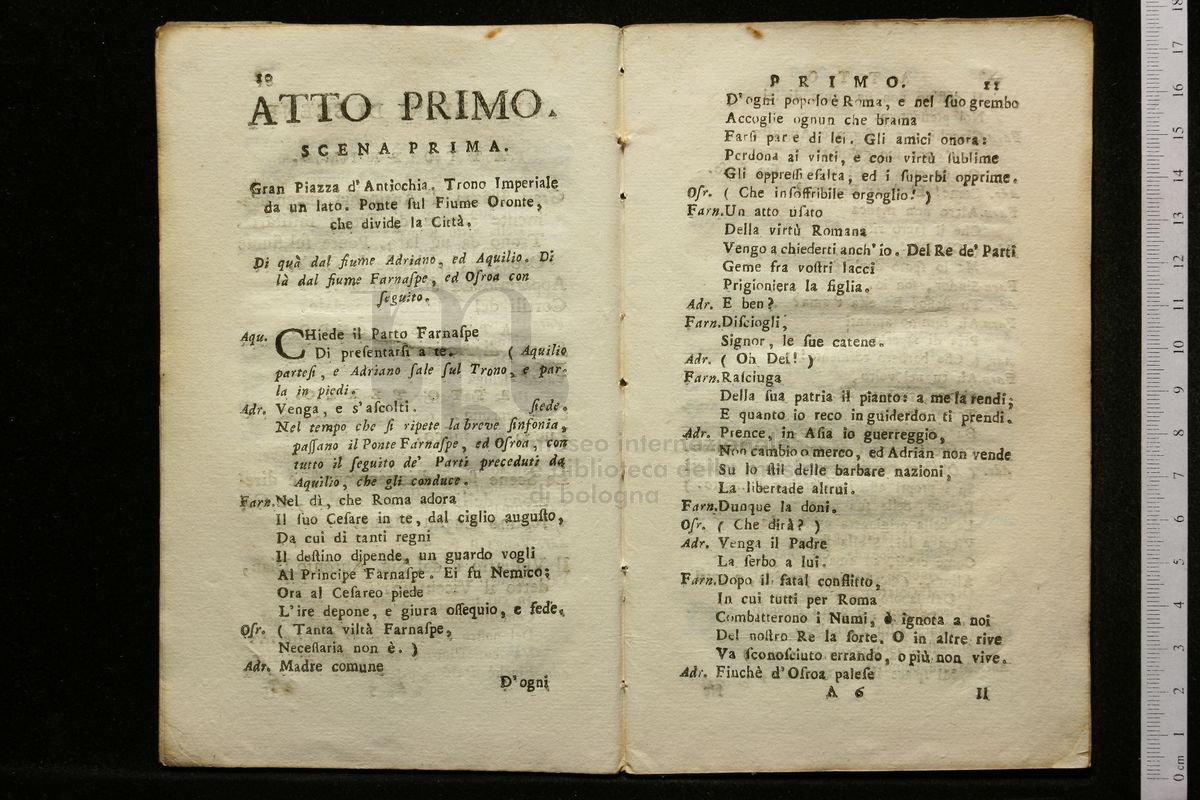 10
ATTO PRIMO.
SCENA PRIMA.
Gran Piazza d'Antiochia. Trono Imperiale
da un lato. Ponte ſul Fiume Oronte,
che divide la Città.
Di quà dal fiume Adriano, ed Aquilio. Di
là dal fiume Farnaſpe, ed Oſroa con
ſeguito.
Aqu. CHiede il Parto Farnaſpe
Di preſentarſi a te. ( Aquilio
parteſi, e Adriano ſale ſul Trono, e par-
la in piedi.
Adr. Venga, e s'aſcolti. ſiede.
Nel tempo che ſi ripete la breve ſinfonia,
paſſano il Ponte Farnaſpe, ed Oſroa, con
tutto il ſeguito de' Parti preceduti da
Aquilio, che gli conduce.
Farn. Nel dì, che Roma adora
Il ſuo Ceſare in te, dal ciglio auguſto,
Da cui di tanti regni
Il deſtino dipende, un guardo vogli
Al Principe Farnaſpe. Ei fu Nemico;
Ora al Ceſareo piede
L'ire depone, e giura oſſequio, e fede.
Oſr. ( Tanta viltà Farnaſpe,
Neceſſaria non è. )
Adr. Madre comune
D'ogni
PRIMO. 11
D'ogni popolo è Roma, e nel ſuo grembo
Accoglie ognun che brama
Farſi parte di lei. Gli amici onora:
Perdona ai vinti, e con virtù ſublime
Gli oppreſſi eſalta, ed i ſuperbi opprime.
Oſr. ( Che inſoffribile orgoglio! )
Farn. Un atto uſato
Della virtù Romana
Vengo a chiederti anch' io. Del Re de' Parti
Geme fra voſtri lacci
Prigioniera la figlia.
Adr. E ben?
Farn. Diſciogli,
Signor, le ſue catene.
Adr. ( Oh Dei! )
Farn. Raſciuga
Della ſua patria il pianto: a me la rendi;
E quanto io reco in guiderdon ti prendi.
Adr. Prence, in Aſia io guerreggio,
Non cambio o merco, ed Adrian non vende
Su lo ſtil delle barbare nazioni,
La libertade altrui.
Farn. Dunque la doni.
Oſr. ( Che dirà? )
Adr. Venga il Padre
La ſerbo a lui.
Farn. Dopo il fatal conflitto,
In cui tutti per Roma
Combatterono i Numi, è ignota a noi
Del noſtro Re la ſorte. O in altre rive
Va ſconoſciuto errando, o più non vive.
Adr. Finchè d'Oſroa paleſe
A 6 Il
museo internazionale
biblioteca della
di bologna
0 cm 1 2 3 4 5 6 7 8 9 10 11 12 13 14 15 16 17 18